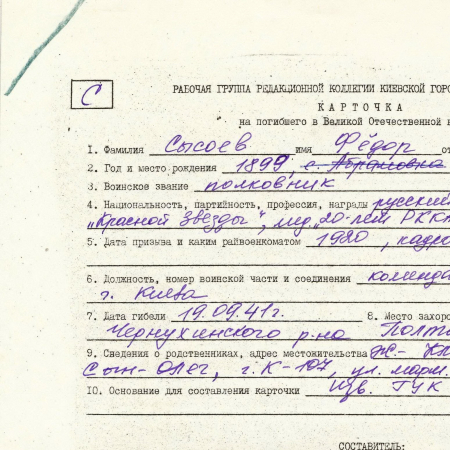 С
РАБОЧАЯ ГРУППА РЕДАКЦИОННОЙ КОЛЛЕГИИ КИЕВСКОЙ ГОРО
КАРТОЧКА
на погибшего в Великой Отечественной в
1. Фамилия Сысоев имя Фёдор от
2. Год и место рождения 1899, с. Абрамовка
3. Воинское звание полковник
4. Национальность, партийность, профессия, награды русский
„Красной Звезды", мед. „20-лет РККА
5. Дата призыва и каким райвоенкоматом 1920, кадро
6. Должность, номер воинской части и соединения коменда
г. Киева
7. Дата гибели 19.09.41г. 8. Место захоро
Чернухинского р-на Полта
9. Сведения о родственниках, адрес местожительства Ж.- Кл
Сын-Олег, г. К-107, ул. марш.
10. Основание для составления карточки Изв. ГУК
СОСТАВИТЕЛЬ: